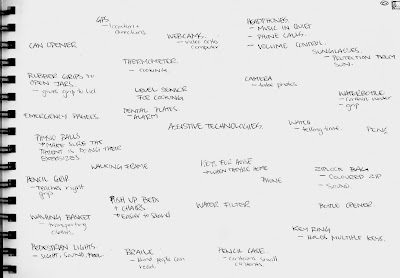 GPS
- location +
directions
WEBCAMS.
- video calls
computer
HEADPHONES
- MUSIC IN QUIET
- PHONE CALLS
- VOLUME CONTROL.
SUNGLASSES
- PROTECTION FROM
SUN.
CAN OPENER
THERMOMETER
- COOKING.
CAMERA
- take photos
RUBBER GRIPS TO
OPEN JARS.
- give grip to lid
LEVEL SENSOR
FOR COOKING
WATERBOTTLE
- contain water
- grip
EMERGENCY PANELS
DENTAL PLATES
- ALARM
ASSISTIVE TECHNOLOGIES.
WATCH
- telling time.
PENS
PHYSIO BALLS
+ MAKE SURE THE
PATIENT IS DOING THEIR
EXERCISES
WALKING FRAME
- WHEN THEY'RE HOME
PHONE
ZIPLOCK BAGS
- COLOURED ZIP
- SOUND
PENCIL GRIP
- teaches right
grip
PUSH UP BEDS
+ CHAIRS
- EASIER TO STAND
WATER FILTER
BOTTLE OPENER
WASHING BASKET
- transporting
clothes.
KEY RING
- HOLDS MULTIPLE KEYS.
PEDESTRIAN LIGHTS
- SIGHT, SOUND, FEEL
BRAILLE
- blind people can
read.
PENCIL CASE
- contains small
items